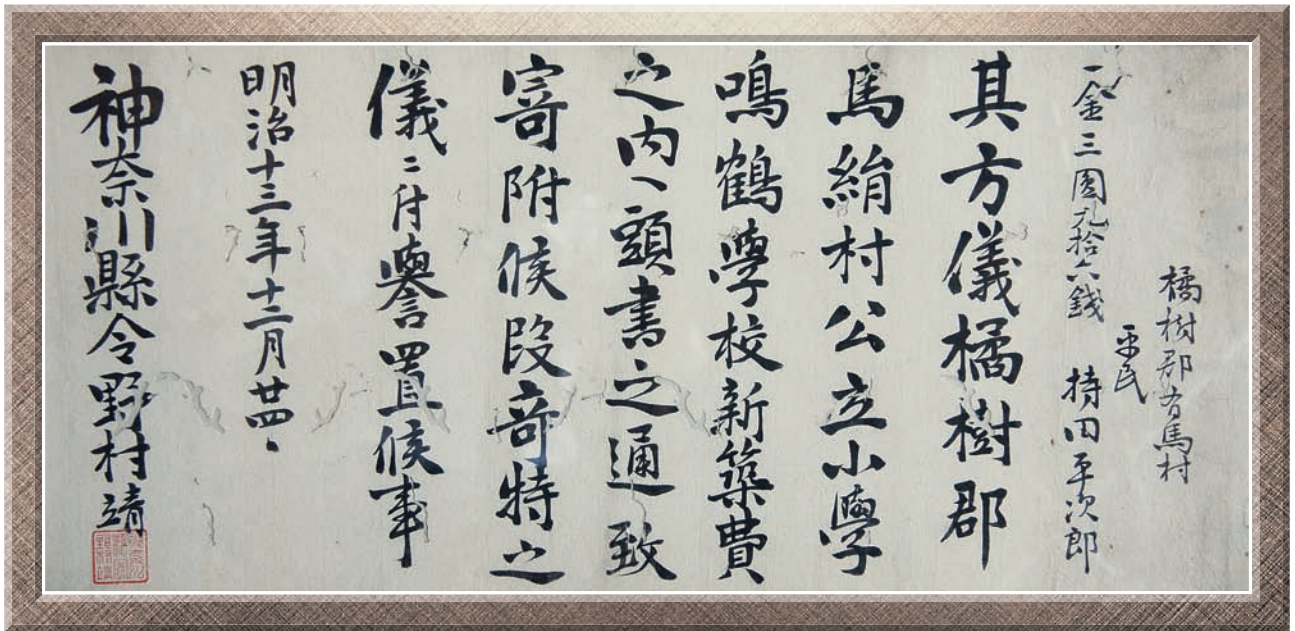 橘樹郡有馬村
平民
持田平次郎
一金三圓九拾六錢
其方儀橘樹郡
馬絹村公立小學
鳴鶴學校新築費
之内ヘ頭書之通致
寄附候段竒特之
儀ニ付譽置候事
明治十三年十二月廿四日
神奈川縣令野村靖